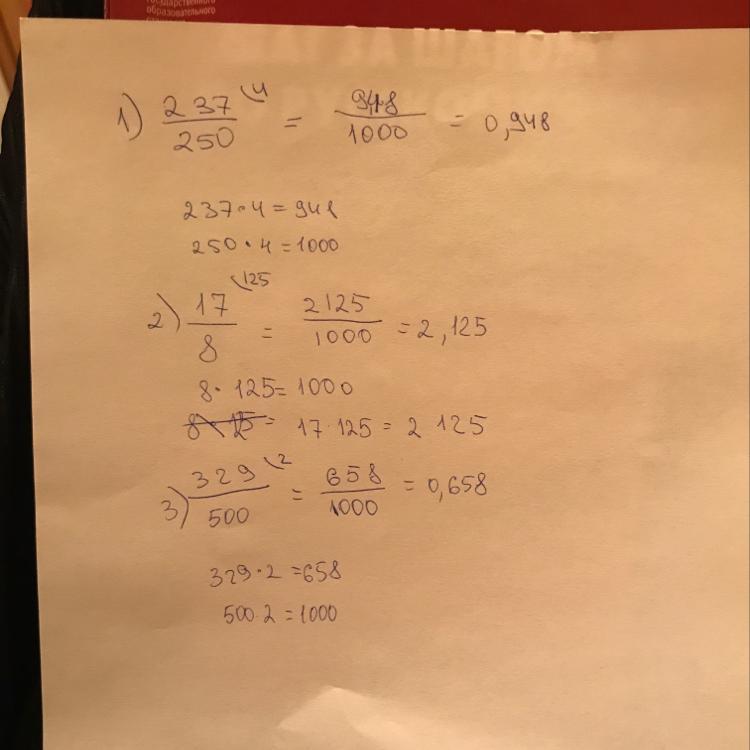 государственного
образовательного
1) 237/250 \4 = 948/1000 = 0,948
237·4=948
250·4=1000
2) 17/8 \125 = 2125/1000 = 2,125
8·125=1000
17·125=2125
3) 329/500 \2 = 658/1000 = 0,658
329·2=658
500·2=1000